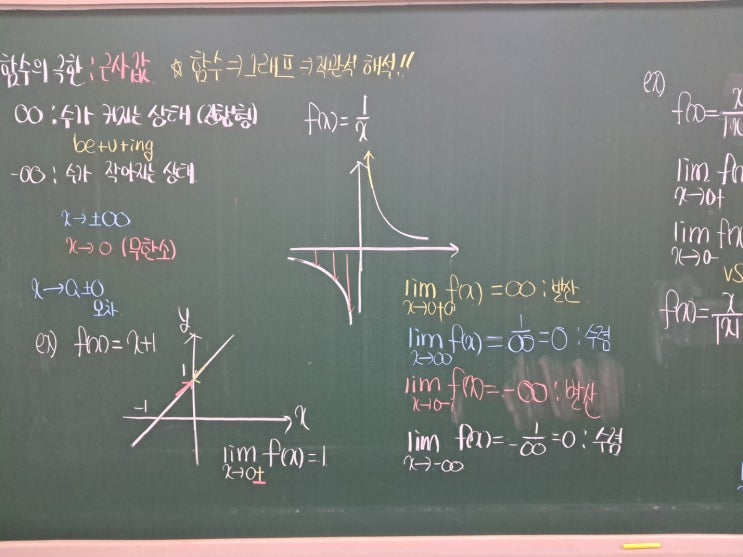 함수의 극한 : 근사값 ☆ 함수 ⇒ 그래프 ⇒ 직관적 해석!!
∞ : 수가 커지는 상태 (진행형)
be+v+ing
-∞ : 수가 작아지는 상태
x→±∞
x→0 (무한소)
x→a±0
오차
ex) f(x)=x+1
y
1
-1
x
lim f(x)=1
x→0±
f(x)=1/x
lim f(x)=∞ : 발산
x→0+0
lim f(x)=1/∞=0 : 수렴
x→∞
lim f(x)=-∞ : 발산
x→0-
lim f(x)=-1/∞=0 : 수렴
x→-∞
ex)
f(x)=x/|x
lim f(x
x→0+
lim f(x
x→0-
VS
f(x)=x/|x|